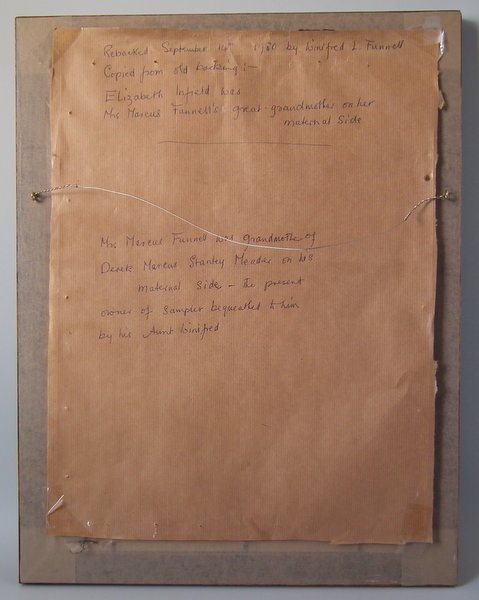 Rebacked September 14th 1980 by Winifred L. Funnell
Copied from old backing :-
Elizabeth Infield was
Mrs Marcus Funnell's great-grandmother on her
maternal Side
Mrs Marcus Funnell was grandmother of
Derek Marcus Stanley Meadar on his
maternal side - the present
owner of sampler bequeathed to him
by his Aunt Winifred